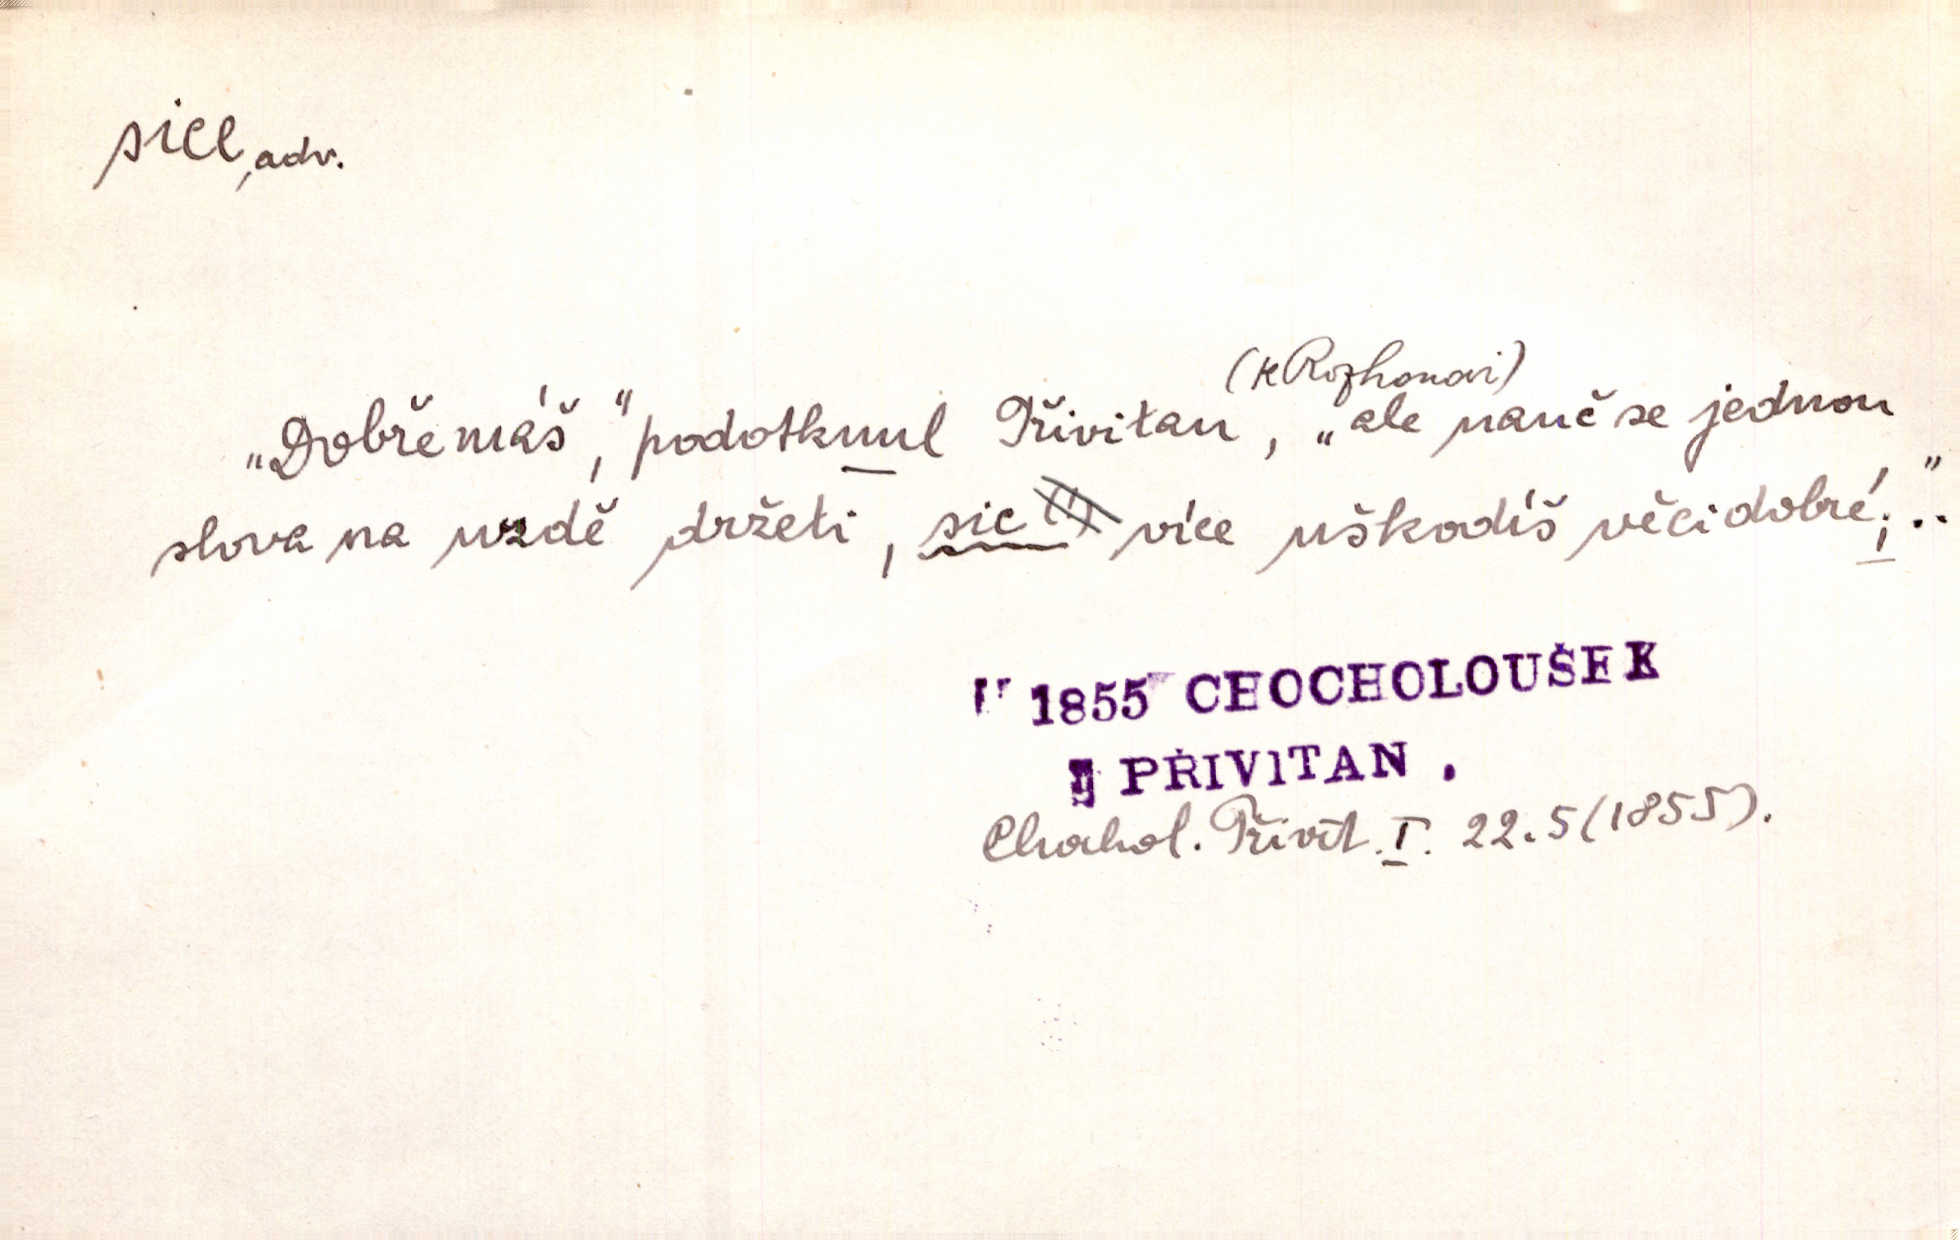 sice, adv.
(k Rozhonovi)
„Dobře máš,“ podotknul Přivitan, „ale nauč se jednou
slova na uzdě držeti, sic více uškodíš věci dobré; ..”
1855 CHOCHOLOUŠEK
PŘIVITAN .
Chochol. Přivit. I. 22.5 (1855).